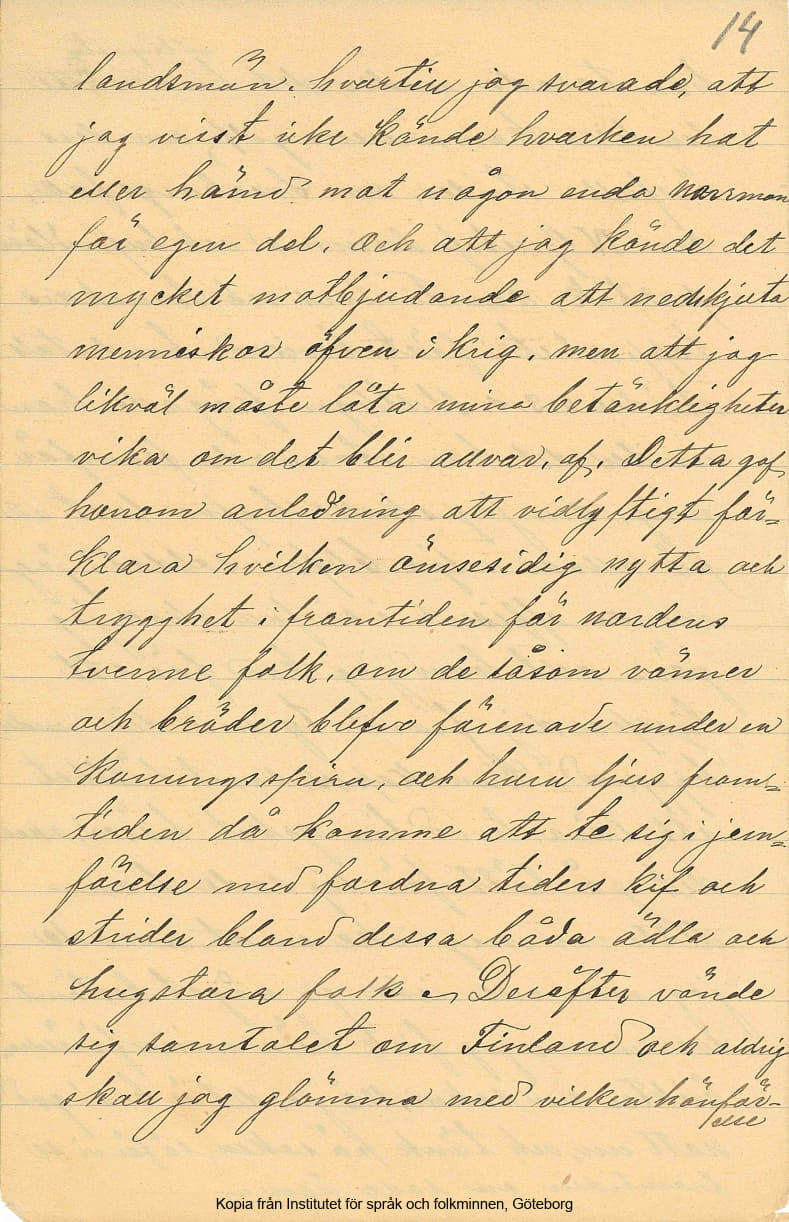 14
landsmän. hvartill jag svarade, att
jag visst icke kände hvarken hat
eller hämd mot någon enda norrman
för egen del. Och att jag kände det
mycket motbjudande att nedskjuta
menniskor öfven i krig. men att jag
likväl måste låta mina betänkligheter
vika om det blir allvar. af. Detta gaf
honom anledning att vidlyftigt för-
klara hvilken ömsesidig nytta och
trygghet i framtiden för nordens
tvenne folk, om de såsom vänner
och bröder blefvo förenade under en
konungsspira, och huru ljus fram-
tiden då komme att te sig i jem-
förelse med fordna tiders kif och
strider bland dessa båda ädla och
hugstora folk. Derefter vände
sig samtalet om Finland och aldrig
skall jag glömma med vilken hänför-
else
Kopia från Institutet för språk och folkminnen, Göteborg